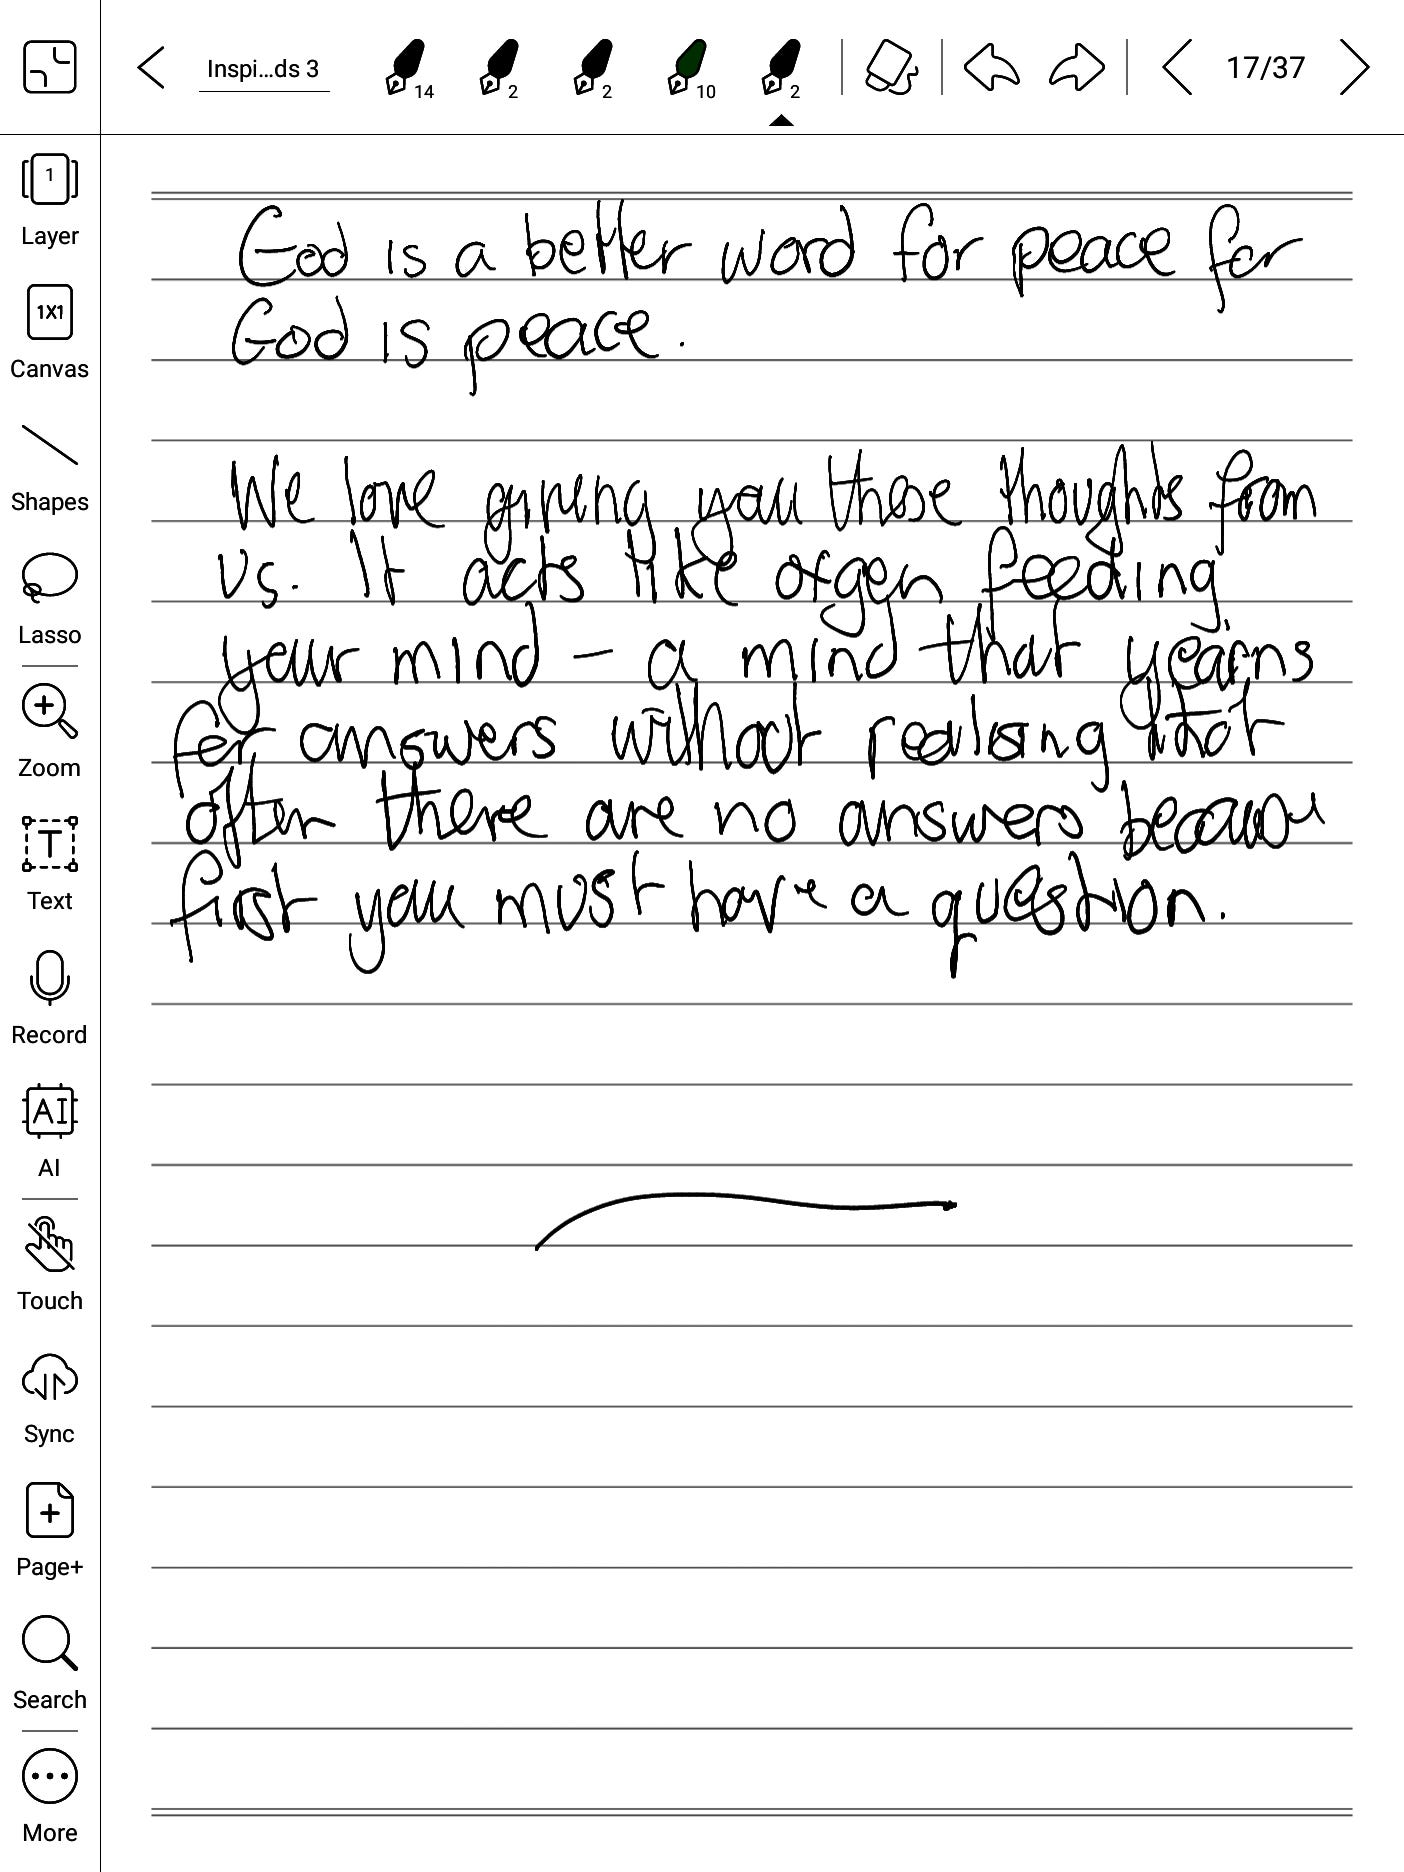 Inspi...ds 3
14
2
2
10
2
17/37
1
Layer
1X1
Canvas
Shapes
Lasso
Zoom
T
Text
Record
AI
AI
Touch
Sync
Page+
Search
More
God is a better word for peace for
God is peace.
We love giving you these thoughts from
us. It acts like feeding
your mind – a mind that yearns
for answers without realising that
often there are no answers because
first you must have a question.